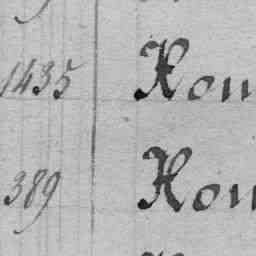 1435 Hou
389 Hou